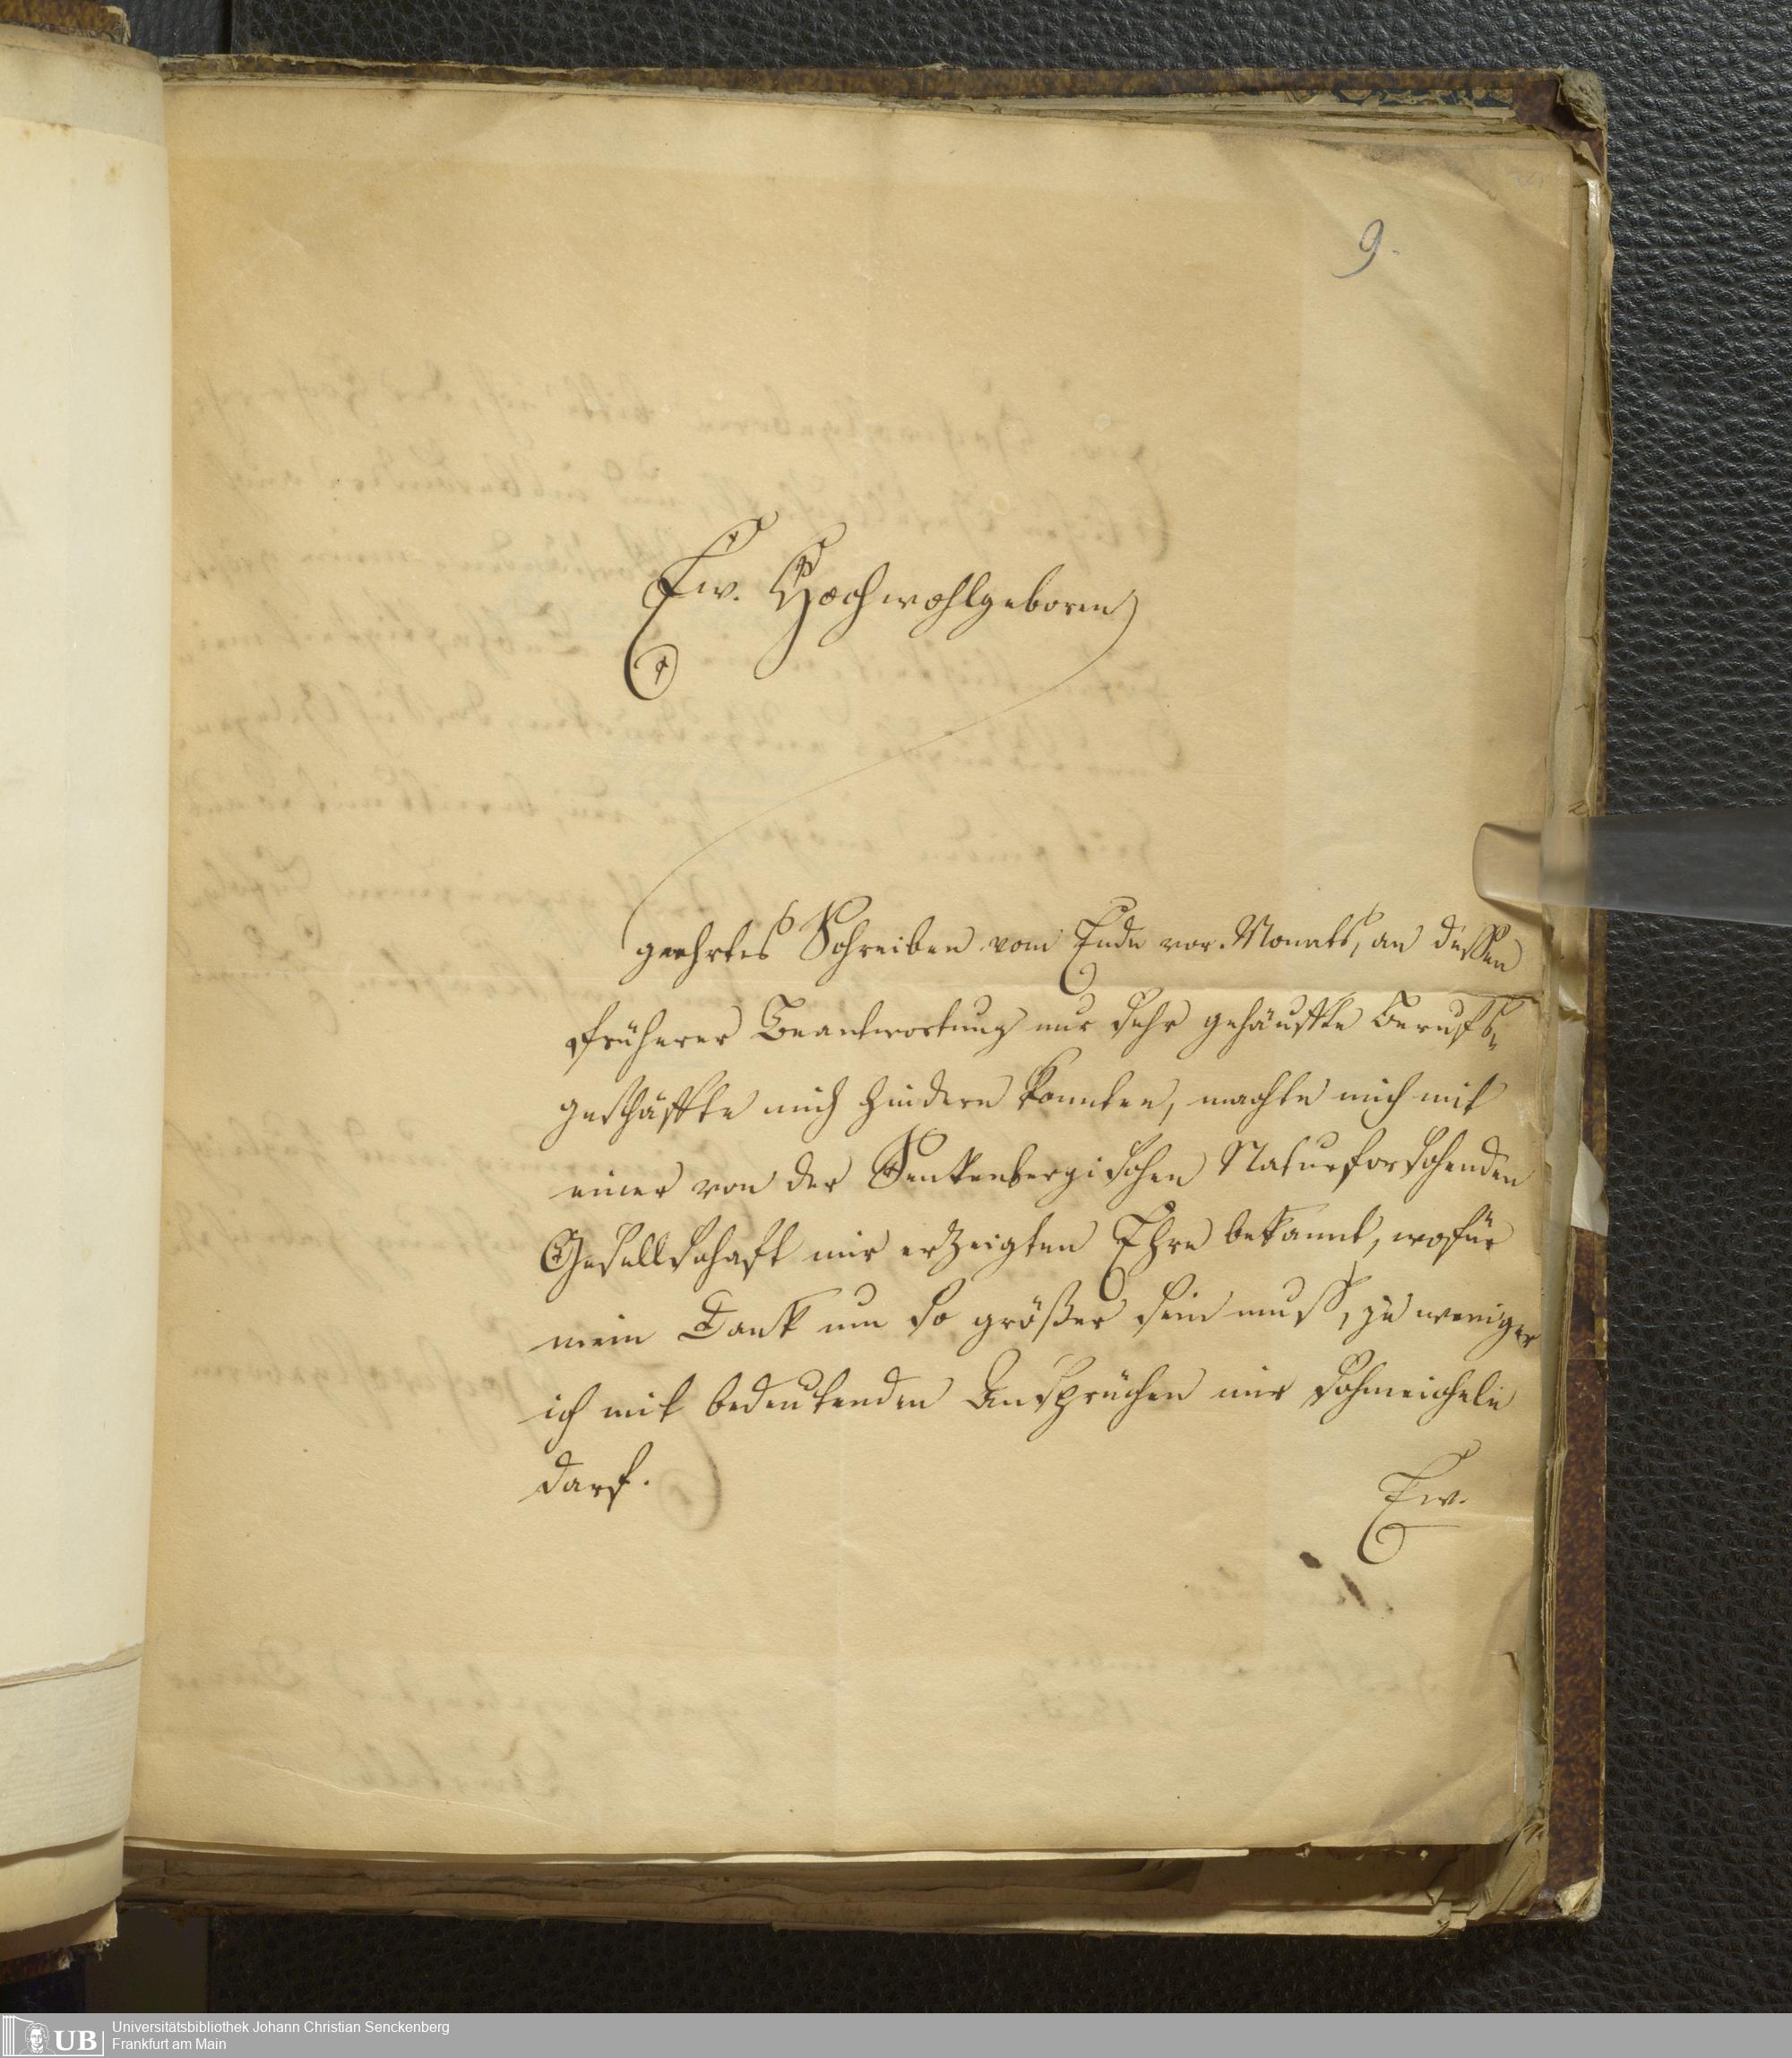 9.
Ew. Hochwohlgeboren
geehrtes Schreiben vom Ende vor. Monats, an dessen
früherer Beantwortung nur sehr gehäuffte Berufs-
geschäffte mich hindern konnten, machte mich mit
einer von der Senkenbergischen Naturforschenden
Gesellschaft mir erzeigten Ehre bekannt, wofür
mein Dank um so größer sein muss, je weniger
ich mit bedeutenden Ansprüchen mir schmeicheln
darf.
Ew.
UB
Universitätsbibliothek Johann Christian Senckenberg
Frankfurt am Main